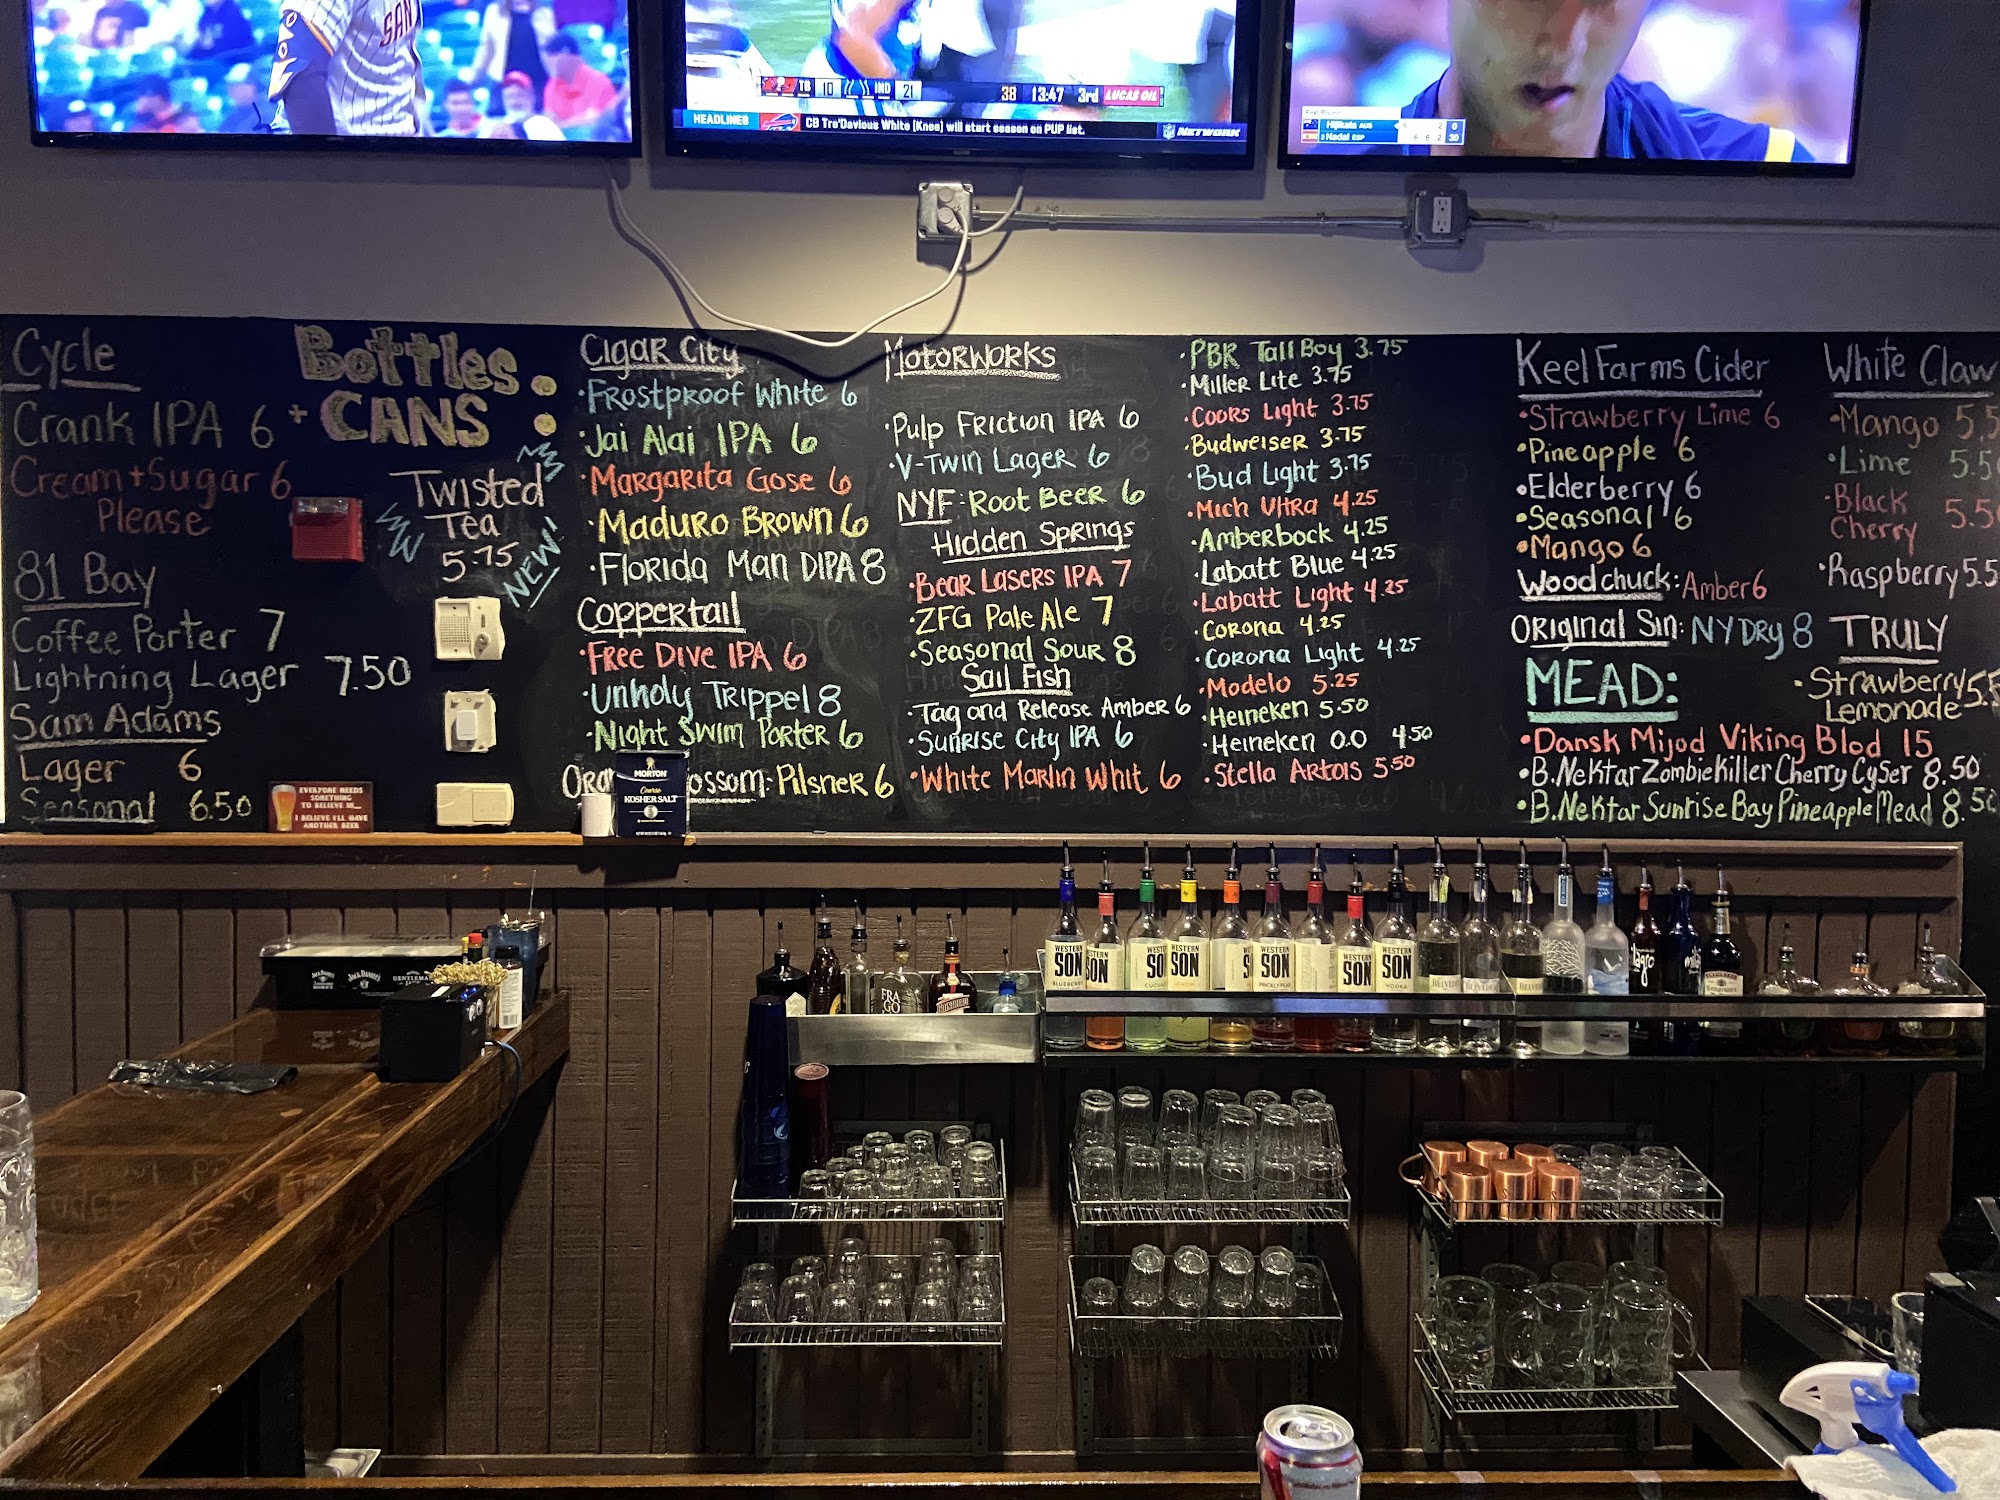 SAN
TB 10 IND 21 38 13:47 3rd LUCAS OIL
HEADLINES CB Tre'Davious White (Knee) will start season on PUP list. NFL NETWORK
First Round
Hijikata AUS 2 0
2 Nadal ESP 6 6 2 30
Bottles
+ CANS:
Cycle
Crank IPA 6
Cream + Sugar 6
Please
81 Bay
Coffee Porter 7
Lightning Lager 7.50
Sam Adams
Lager 6
Seasonal 6.50
Twisted
Tea
5.75
NEW!
EVERYONE NEEDS
SOMETHING
TO BELIEVE IN...
I BELIEVE I'LL HAVE
ANOTHER BEER
Cigar City
• Frostproof White 6
• Jai Alai IPA 6
• Margarita Gose 6
• Maduro Brown 6
• Florida Man DIPA 8
Coppertail
• Free Dive IPA 6
• Unholy Trippel 8
• Night Swim Porter 6
Ora ossom: Pilsner 6
MORTON
Coarse
KOSHER SALT
Motorworks
• Pulp Friction IPA 6
• V-Twin Lager 6
NYF: Root Beer 6
Hidden Springs
• Bear Lasers IPA 7
• ZFG Pale Ale 7
• Seasonal Sour 8
Sail Fish
• Tag and Release Amber 6
• Sunrise City IPA 6
• White Marlin Whit 6
• PBR Tall Boy 3.75
• Miller Lite 3.75
• Coors Light 3.75
• Budweiser 3.75
• Bud Light 3.75
• Mich Ultra 4.25
• Amberbock 4.25
• Labatt Blue 4.25
• Labatt Light 4.25
• Corona 4.25
• Corona Light 4.25
• Modelo 5.25
• Heineken 5.50
• Heineken 0.0 4.50
• Stella Artois 5.50
Keel Farms Cider
• Strawberry Lime 6
• Pineapple 6
• Elderberry 6
• Seasonal 6
• Mango 6
Woodchuck: Amber 6
Original Sin: NY Dry 8
MEAD:
• Dansk Mijod Viking Blod 15
• B. Nektar Zombie Killer Cherry Cyser 8.50
• B. Nektar Sunrise Bay Pineapple Mead 8.50
White Claw
• Mango 5.5
• Lime 5.5
• Black
Cherry 5.5
• Raspberry 5.5
TRULY
• Strawberry
Lemonade 5.5
JACK DANIEL'S
GENTLEMAN
JACK
FRA
GO
WESTERN
SON
BLUEBERRY
SON
WESTERN
SO
WESTERN
SON
LEMON
WESTERN
SON
PRICKLY PEAR
WESTERN
SON
WESTERN
SON
VODKA
BELVEDERE